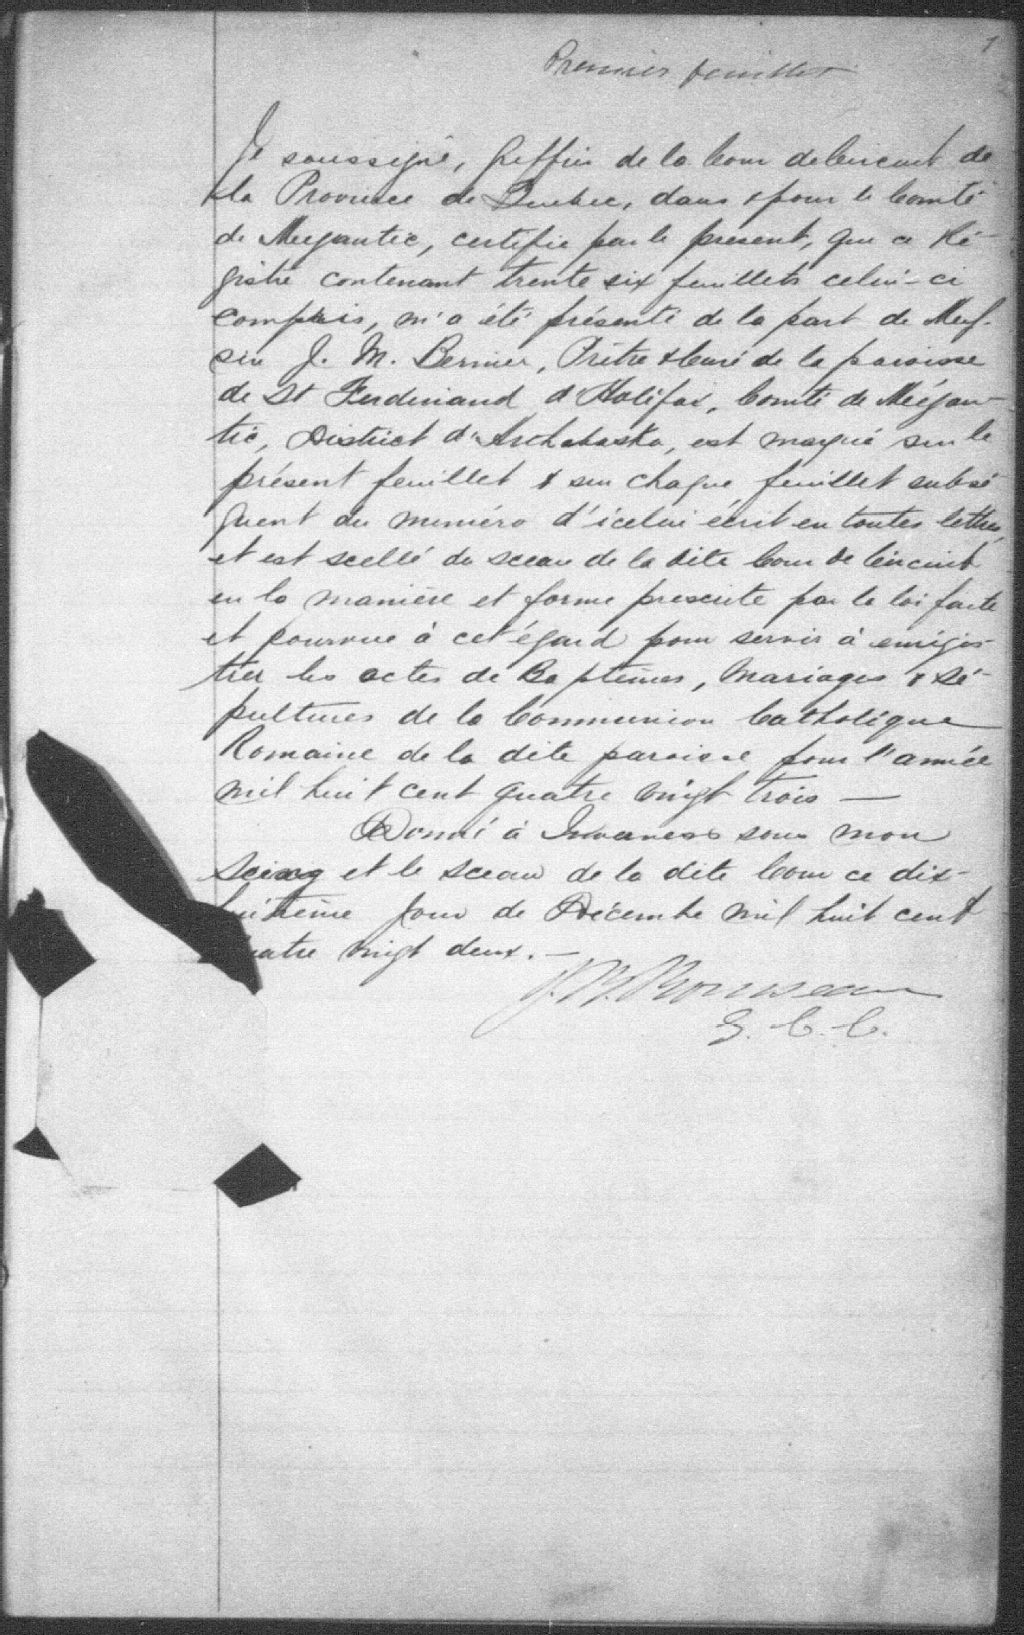 1
Premier feuillet
Je soussigné, Greffier de la Cour de Circuit de
la Province de Quebec, dans & pour le Comté
de Megantic, certifie par le présent, que ce Ré-
gistre contenant trente six feuillets celui-ci
compris, m'a été présenté de la part de Mes-
sire J. M. Bernier, Prêtre & Curé de la paroisse
de St Ferdinand d'Halifax, Comté de Mégan-
tic, District d'Arthabaska, est marqué sur le
présent feuillet & sur chaque feuillet subsé
quent du numéro d'icelui écrit en toutes lettres,
et est scellé du sceau de la dite Cour de Circuit
en la manière et forme prescrite par la loi faite
et pourvue à cet égard pour servir à enrégis-
trer les actes de Baptêmes, Mariages & Sé-
pultures de la Communion Catholique
Romaine de la dite paroisse pour l'année
mil huit cent quatre vingt trois —
Donné à Inverness sous mon
Seing et le sceau de la dite Cour ce dix-
huitième jour de Décembre mil huit cent
quatre vingt deux. —
Rousseau
G. C. C.